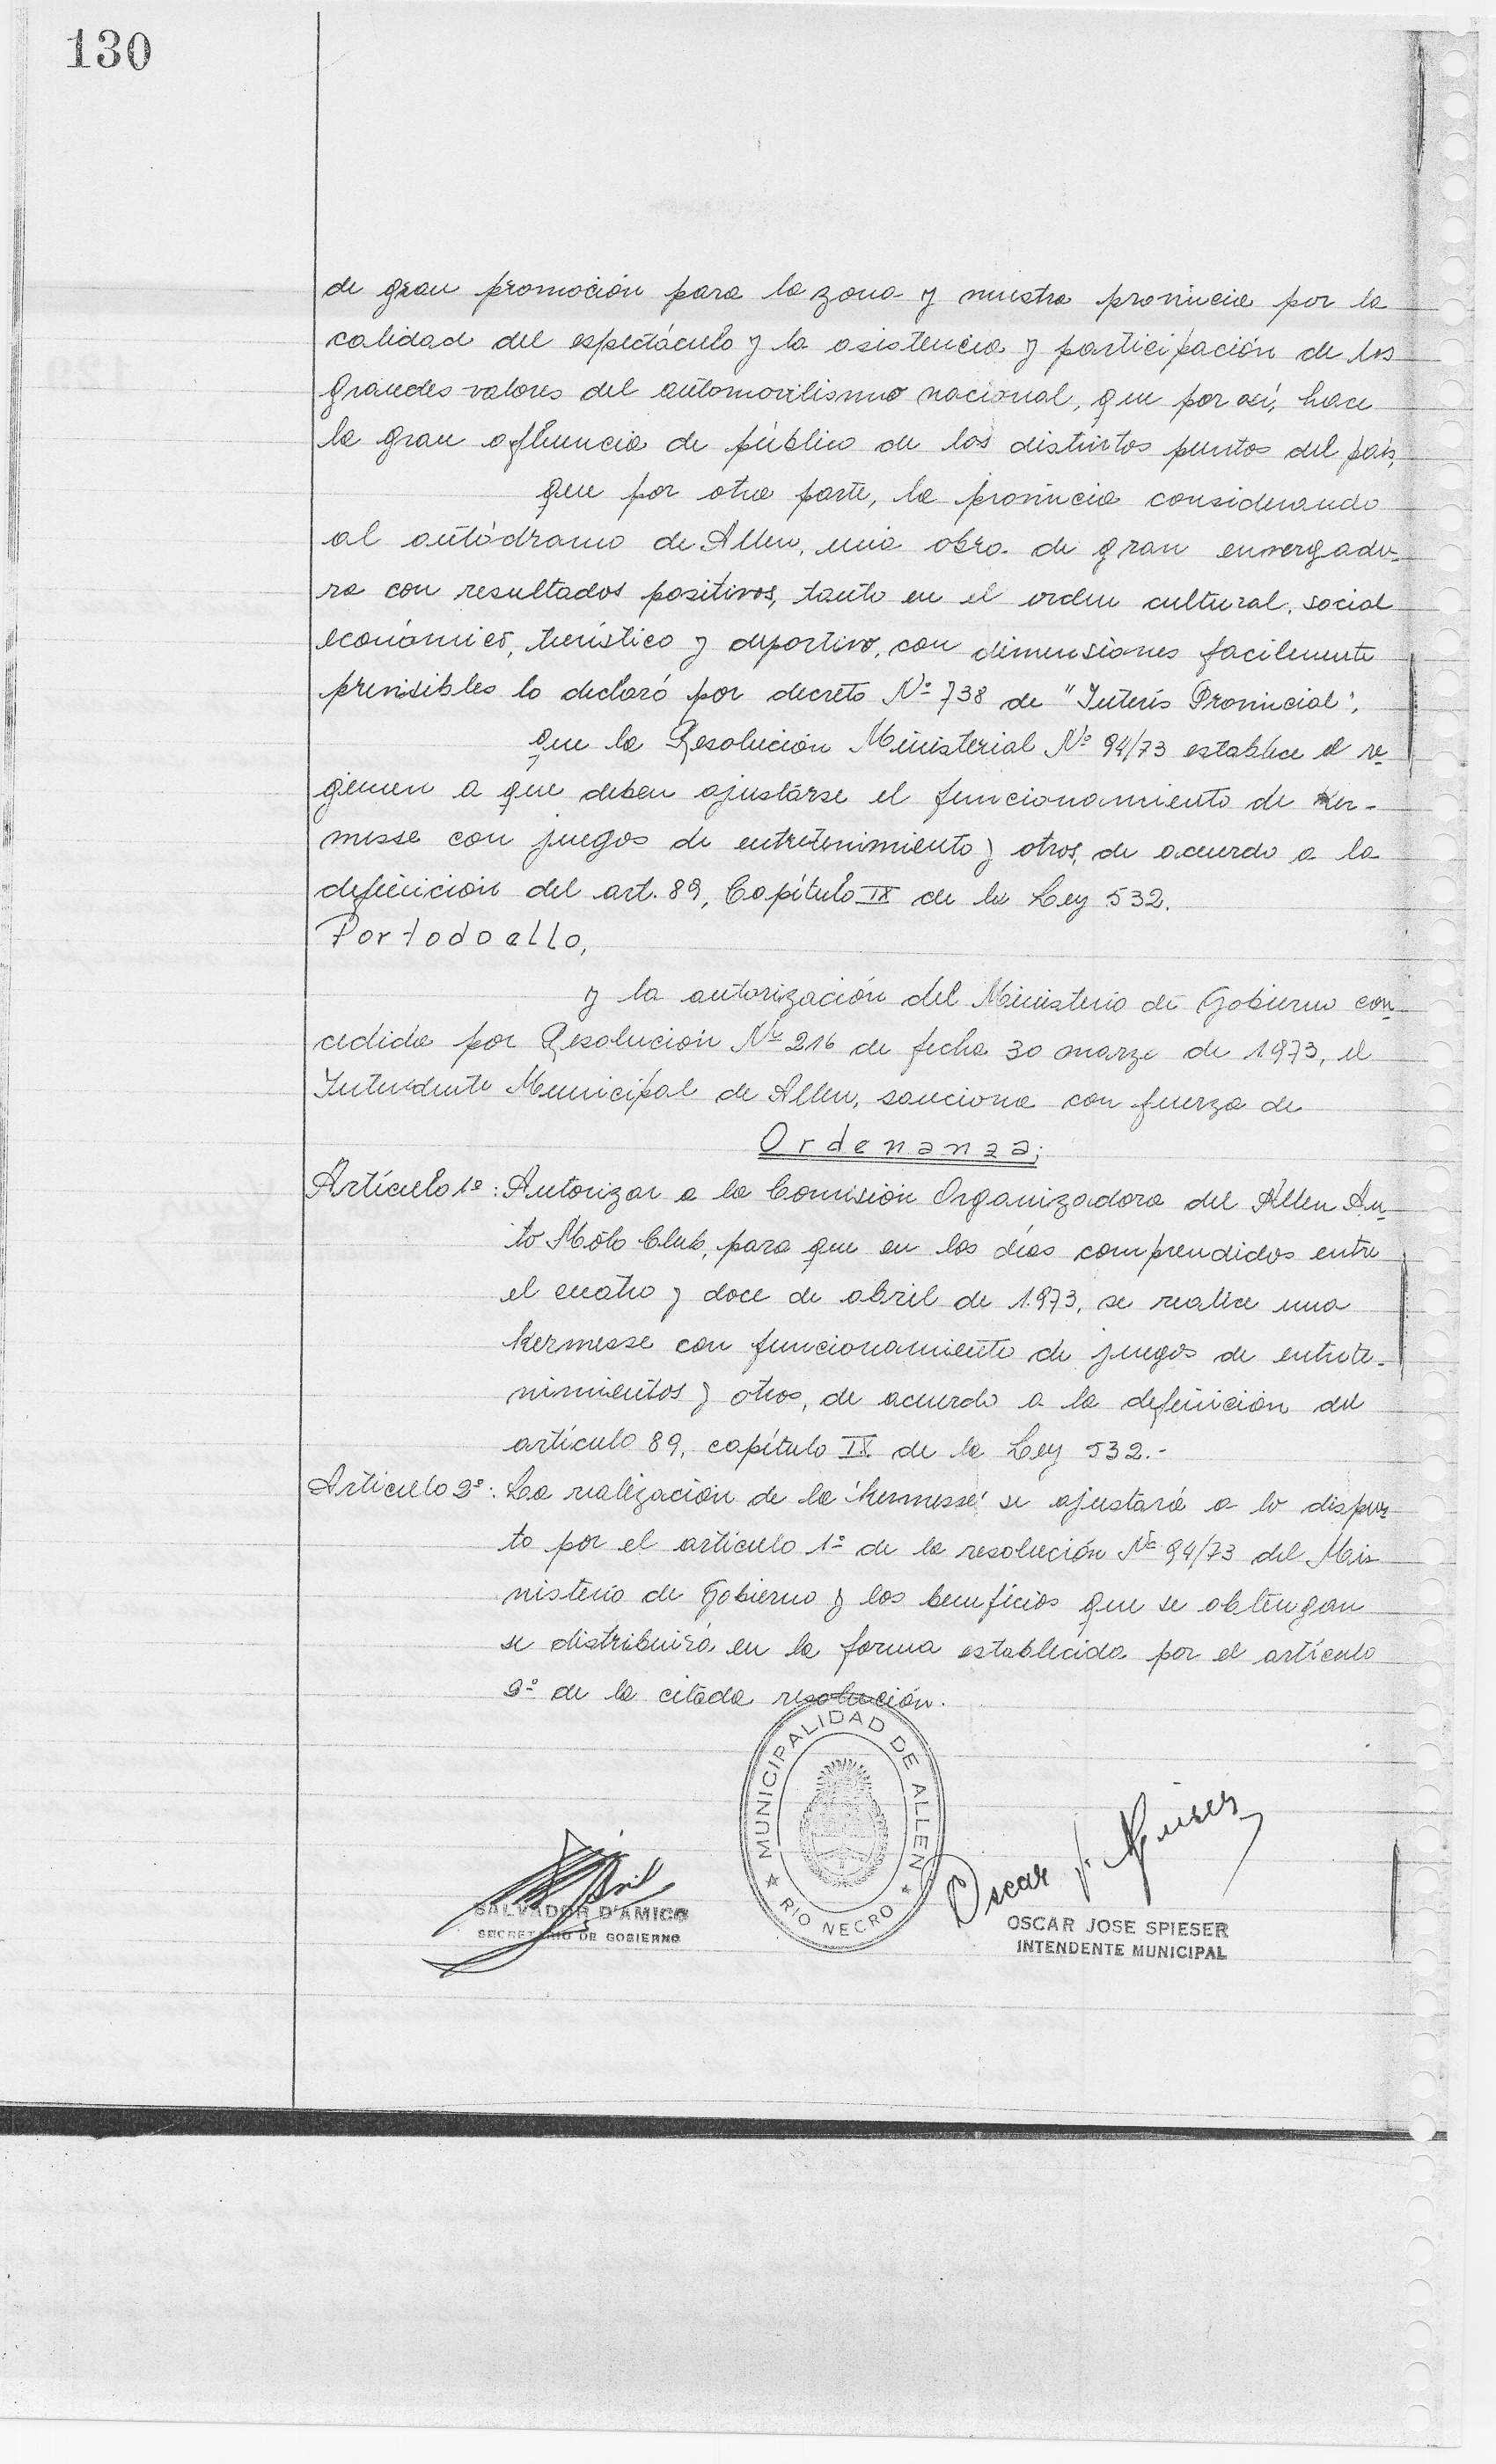 130
de gran promoción para la zona y nuestra provincia por la
calidad del espectáculo y la asistencia y participación de los
grandes valores del automovilismo nacional, que por así, hace
la gran afluencia de público de los distintos puntos del país,
que por otra parte, la provincia considerando
al autódromo de Allen, una obra de gran envergadu-
ra con resultados positivos, tanto en el orden cultural, social
económico, turístico y deportivo, con dimensiones facilmente
previsibles lo declaró por decreto Nº 738 de "Interés Provincial",
que la Resolución Ministerial Nº 94/73 establece el re-
gimen a que deben ajustarse el funcionamiento de Ker-
messe con juegos de entretenimiento y otros, de acuerdo a la
definición del art. 89, Capítulo IX de la Ley 532.
Por todo ello,
y la autorización del Ministerio de Gobierno con-
cedida por Resolución Nº 216 de fecha 30 marzo de 1973, el
Intendente Municipal de Allen, sanciona con fuerza de
Ordenanza;
Artículo 1º: Autorizar a la Comisión Organizadora del Allen Au-
to Moto Club, para que en los días comprendidos entre
el cuatro y doce de abril de 1.973, se realice una
kermesse con funcionamiento de juegos de entrete-
nimientos y otros, de acuerdo a la definición del
artículo 89, capítulo IX de la Ley 532.-
Artículo 2º: La realización de la "kermesse" se ajustará a lo dispues-
to por el artículo 1º de la resolución Nº 94/73 del Mi-
nisterio de Gobierno y los beneficios que se obtengan
se distribuirá en la forma establecida por el artículo
9º de la citada resolución.
MUNICIPALIDAD DE ALLEN
RIO NEGRO
Oscar J. Spieser
SALVADOR D'AMICO
SECRETARIO DE GOBIERNO
OSCAR JOSE SPIESER
INTENDENTE MUNICIPAL